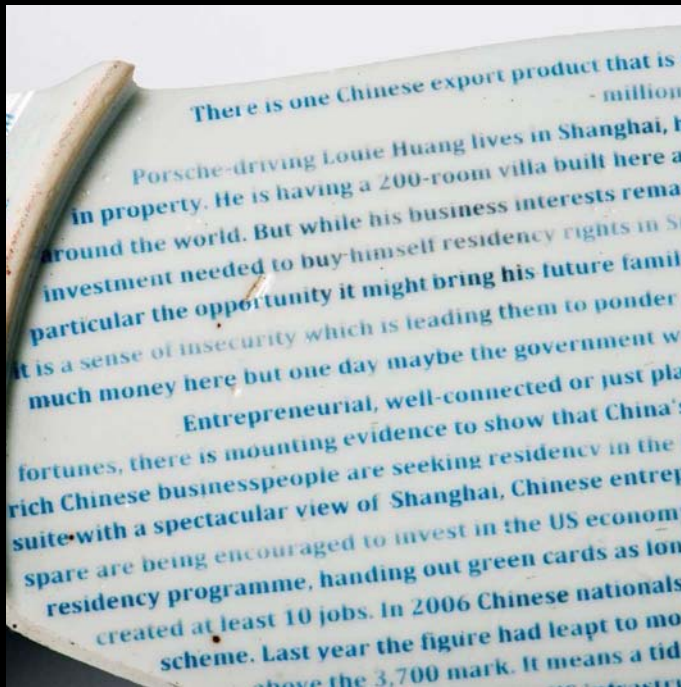 There is one Chinese export product that is
- million
Porsche-driving Louie Huang lives in Shanghai, h
in property. He is having a 200-room villa built here a
around the world. But while his business interests rema
investment needed to buy himself residency rights in S
particular the opportunity it might bring his future famil
it is a sense of insecurity which is leading them to ponder
much money here but one day maybe the government w
Entrepreneurial, well-connected or just pla
fortunes, there is mounting evidence to show that China's
rich Chinese businesspeople are seeking residency in the
suite with a spectacular view of Shanghai, Chinese entrep
spare are being encouraged to invest in the US econom
residency programme, handing out green cards as lon
created at least 10 jobs. In 2006 Chinese nationals
scheme. Last year the figure had leapt to mo
above the 3,700 mark. It means a tid